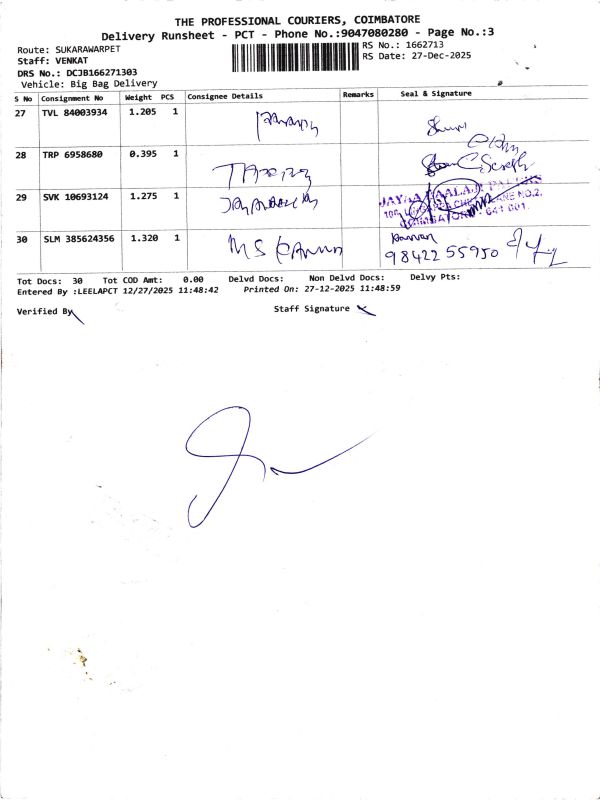 THE PROFESSIONAL COURIERS, COIMBATORE
Delivery Runsheet - PCT - Phone No.:9047080280 - Page No.:3
Route: SUKARAWARPET
RS No.: 1662713
Staff: VENKAT
RS Date: 27-Dec-2025
DRS No.: DCJB166271303
Vehicle: Big Bag Delivery
S No Consignment No Weight PCS Consignee Details Remarks Seal & Signature
27 TVL 84003934 1.205 1
28 TRP 6958680 0.395 1
29 SVK 10693124 1.275 1
COIMBATORE - 641 001.
30 SLM 385624356 1.320 1 MS
98422 55950
Tot Docs: 30 Tot COD Amt: 0.00 Delvd Docs: Non Delvd Docs: Delvy Pts:
Entered By :LEELAPCT 12/27/2025 11:48:42 Printed On: 27-12-2025 11:48:59
Verified By
Staff Signature